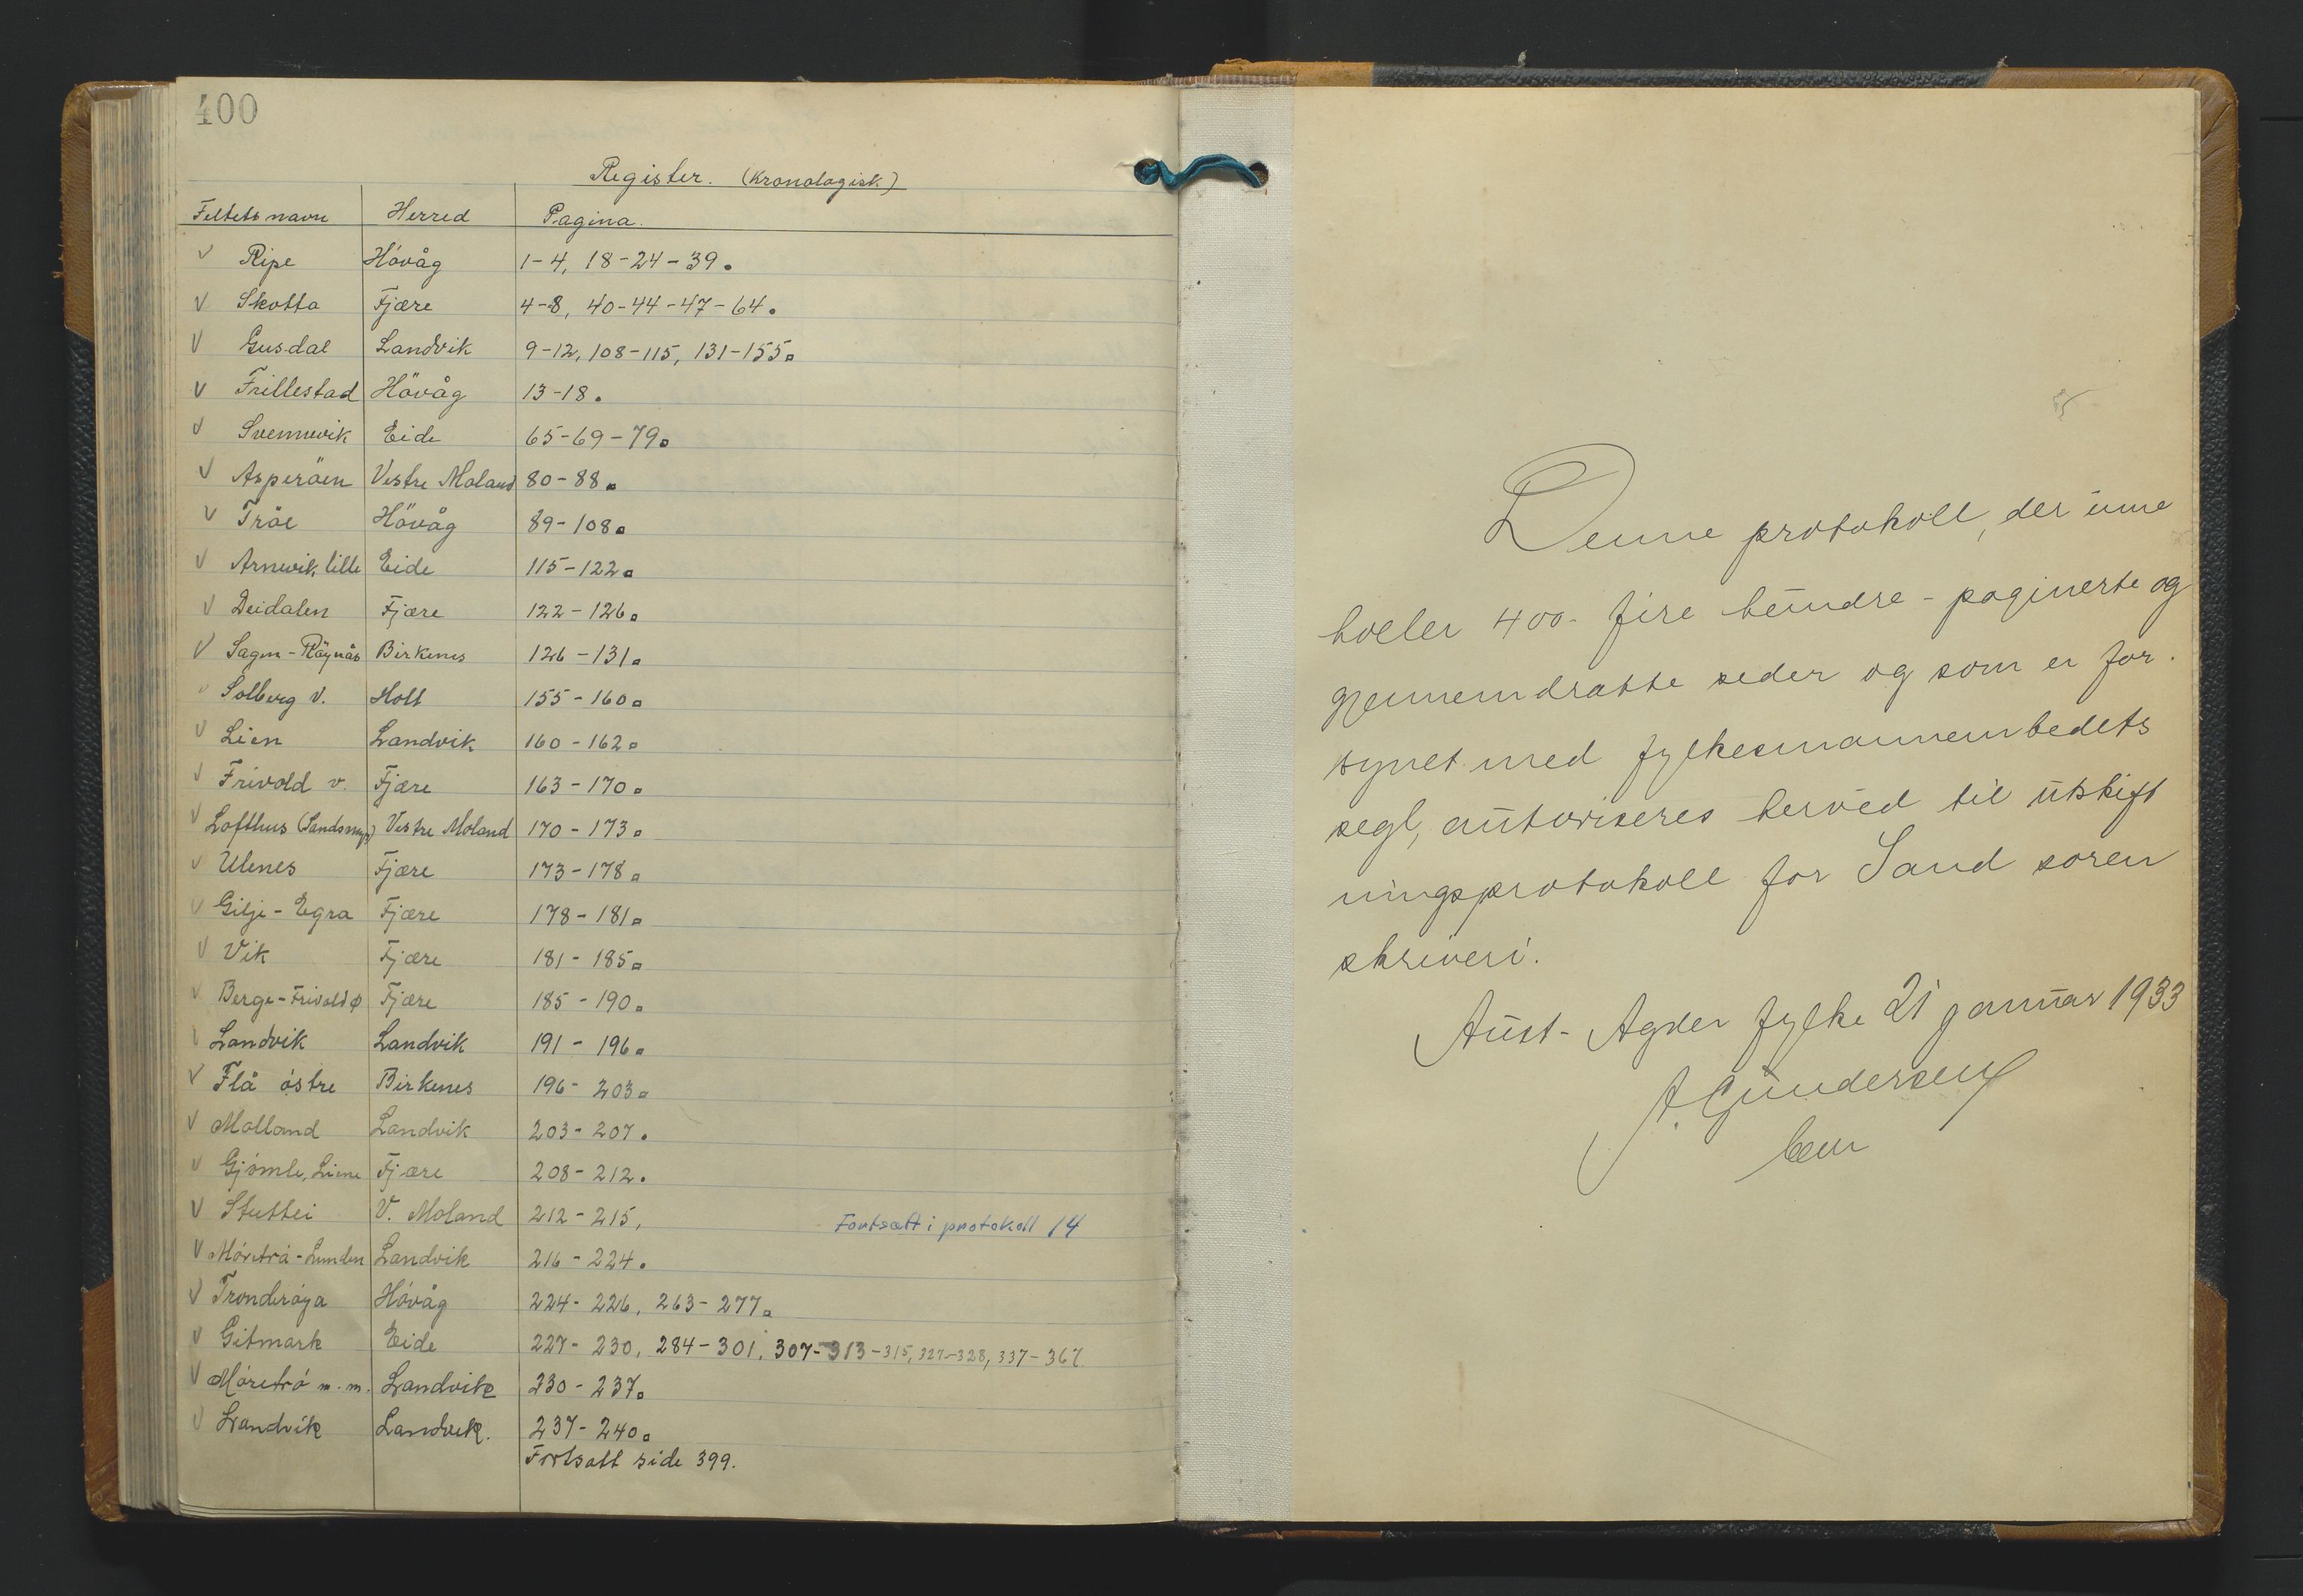 400
Register. (Kronologisk)
Feltets navn Herred Pagina.
√ Ripe Hövåg 1-4, 18-24-39.
√ Skotta Fjære 4-8, 40-44-47-64.
√ Gusdal Landvik 9-12, 108-115, 131-155.
√ Frillestad Hövåg 13-18.
√ Svennevik Eide 65-69-79.
√ Asperöen Vestre Moland 80-88.
√ Tröe Hövåg 89-108.
√ Arnevik lille Eide 115-122.
√ Deidalen Fjære 122-126.
√ Sagen-Röynås Birkenes 126-131.
√ Solberg v. Holt 155-160.
√ Lien Landvik 160-162.
√ Frivold v. Fjære 163-170.
√ Lofthus (Sandsmyr) Vestre Moland 170-173.
√ Ulenes Fjære 173-178.
√ Gilje-Egra Fjære 178-181.
√ Vik Fjære 181-185.
√ Berge-Frivold ø Fjære 185-190.
√ Landvik Landvik 191-196.
√ Flå östre Birkenes 196-203.
√ Molland Landvik 203-207.
√ Gjömle, Liene Fjære 208-212.
√ Stuttei V. Moland 212-215, Fortsatt i protokoll 14
√ Möretrö-Lunden Landvik 216-224.
√ Tronderöya Hövåg 224-226, 263-277.
√ Gitmark Eide 227-230, 284-301, 307-313-315, 327-328, 337-367
√ Möretrö m.m. Landvik 230-237.
√ Landvik Landvik. 237-240.
Fortsatt side 399.
Denne protokoll, der inne
holder 400- fire hundre - paginerte og
gjennemdratte seder og som er for-
synet med fylkesmannembedets
segl, autoriseres herved til utskift
ningsprotokoll for Sand soren
skriveri.
Aust-Agder fylke 21 januar 1933
A. Gundersen